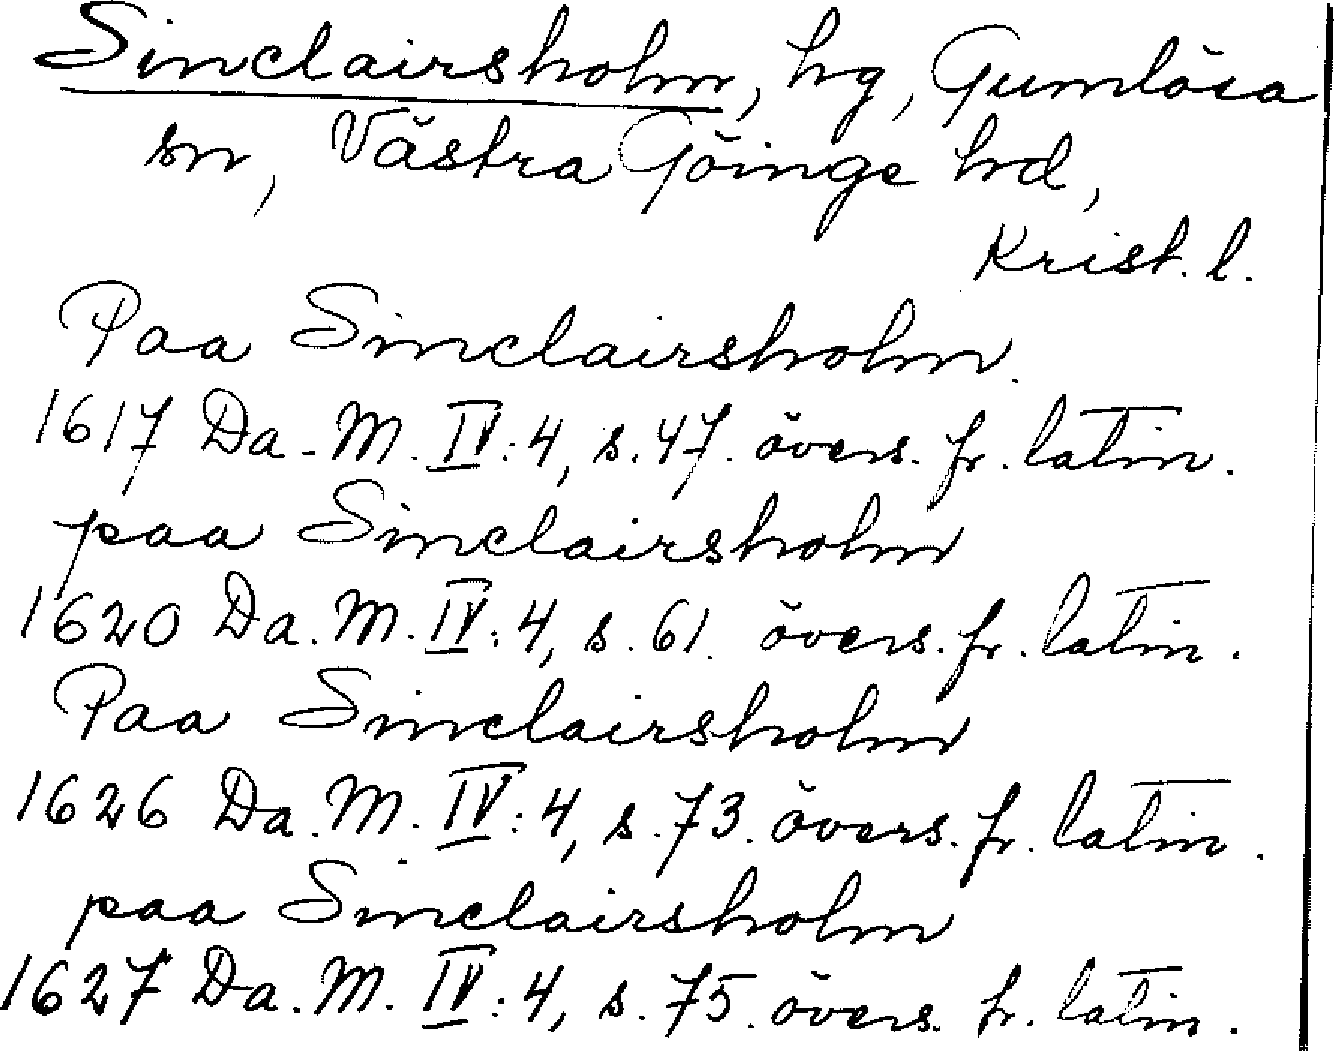 Sinclairsholm, hg, Gumlösa
sn, Västra Göinge hd,
Krist. l.
Paa Sinclairsholm.
1617 Da. M. IV: 4, s. 47. övers. fr. latin.
paa Sinclairsholm
1620 Da. M. IV: 4, s. 61. övers. fr. latin.
Paa Sinclairsholm
1626 Da. M. IV: 4, s. 73. övers. fr. latin.
paa Sinclairsholm
1627 Da. M. IV: 4, s. 75. övers. fr. latin.